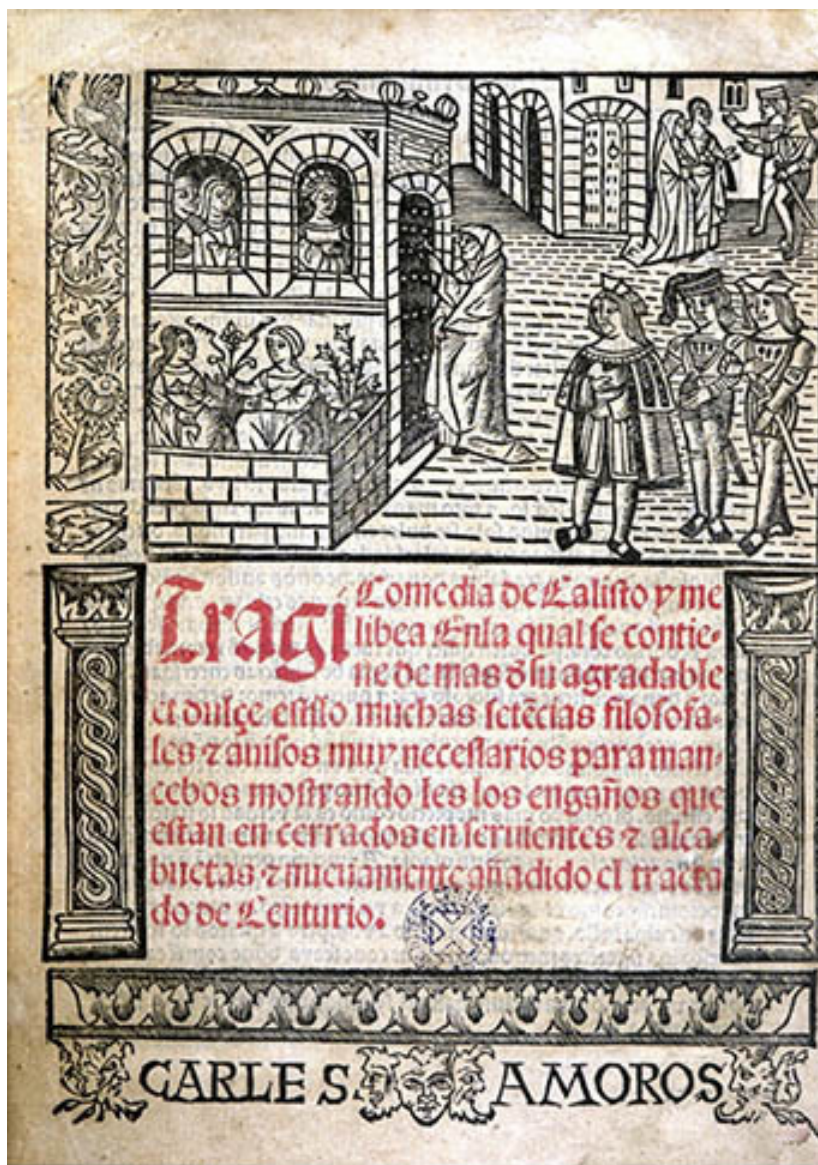 Tragi Comedia de Calisto y me
libea Enla qual se contie-
ne de mas d̄ su agradable
et dulçe estilo muchas setēcias filosofa-
les ⁊ auisos muy necessarios para man-
cebos mostrando les los engaños que
estan en cerrados en seruientes ⁊ alca-
huetas ⁊ nueuamente añadido el tracta
do de Centurio.
CARLES AMOROS